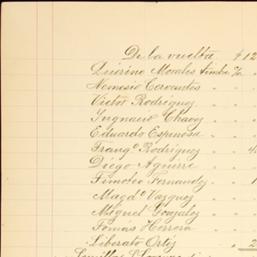 De la vuelta $12
Quirino Morales timbre %
Nemesio Cervantes " "
Victor Rodriguez " "
Ingnacio Chavez " "
Eduardo Espinosa " "
Franqº Rodriguez " " 4
Diego Aguirre " "
Timoteo Fernandez " " 1
Magdº Vazquez " "
Miguel Gonzalez " "
Tomás Herrera " "
Liberato Ortiz " " 2